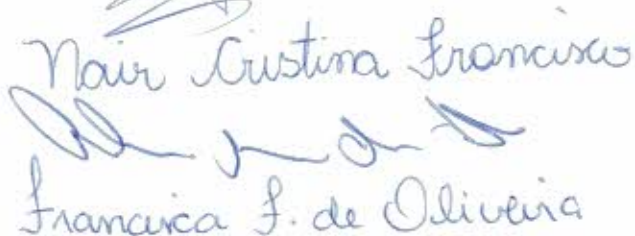 Nair Cristina Francisco
Francisca F. de Oliveira